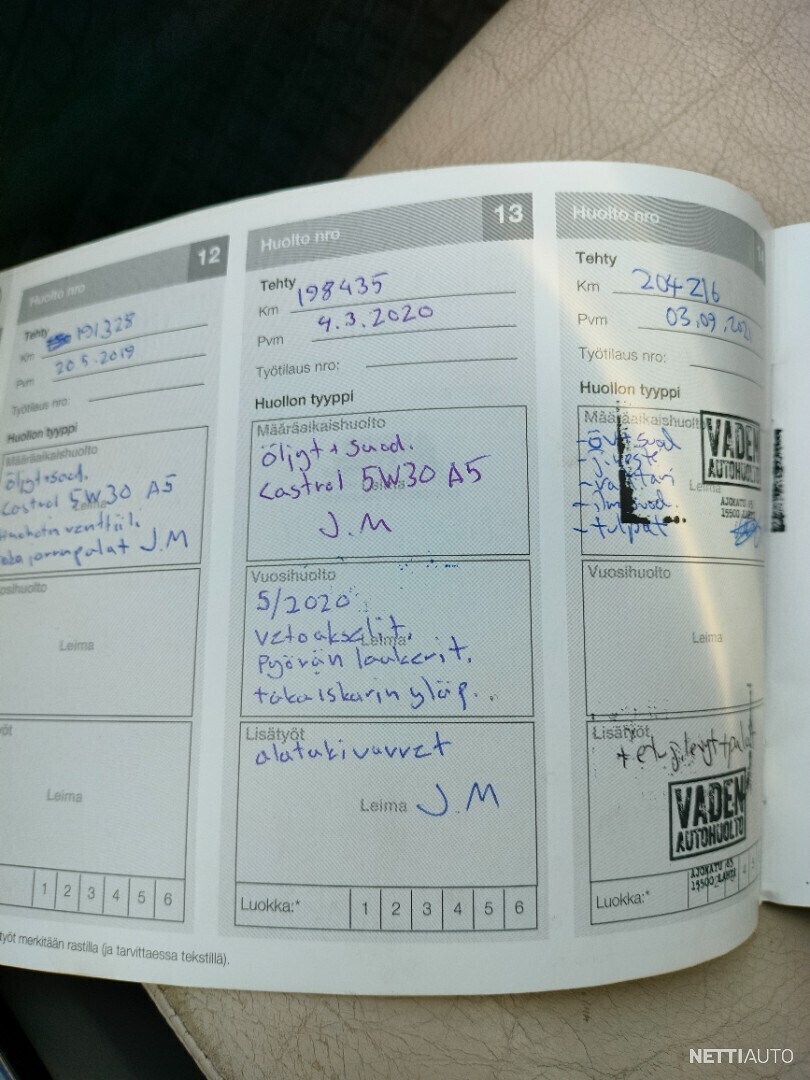 12
Huolto nro
Tehty
Km 191328
Pvm 20.5.2019
Työtilaus nro:
Huollon tyyppi
Määräaikaishuolto
öljyt+suod.
Castrol 5W30 A5
Leima
Huohotin venttiili.
jarrupalat J.M
Vuosihuolto
Leima
Leima
1 2 3 4 5 6
työt merkitään rastilla (ja tarvittaessa tekstillä).
13
Huolto nro
Tehty
Km 198435
Pvm 4.3.2020
Työtilaus nro:
Huollon tyyppi
Määräaikaishuolto
öljyt + suod.
Castrol 5W30 A5
J.M
Vuosihuolto
5/2020
vetoakselit,
Leima
Pyörän laakerit,
takaiskarin yläp..
Lisätyöt
alatukivarret
Leima J.M
Luokka:* 1 2 3 4 5 6
Huolto nro
Tehty
Km 204216
Pvm 03.09.2021
Työtilaus nro:
Huollon tyyppi
Määräaikaishuolto
-öv+suod
-j.neste
-ilm.suod.
-tulpat
Leima
VADEN
AUTOHUOLTO
AJOKATU 45
15500 LAHTI
Vuosihuolto
Leima
Lisätyöt
+ et.j.levyt+palat
VADEN
AUTOHUOLTO
AJOKATU 45
15500 LAHTI
Luokka:*
NETTIAUTO